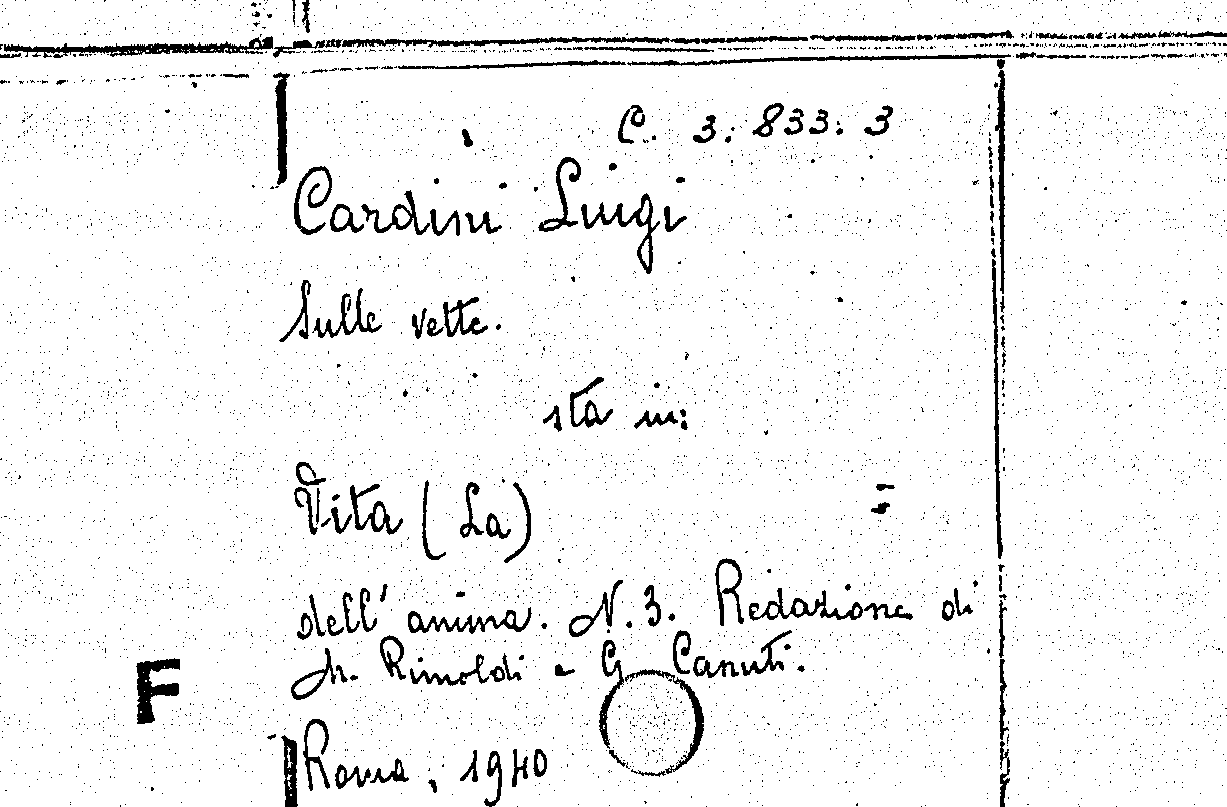 C. 3. 833. 3
Cardini Luigi
Sulle vette.
sta in:
Vita (La)
dell'anima. N. 3. Redazione di
M. Rimoldi e G. Canuti.
F
Roma, 1940